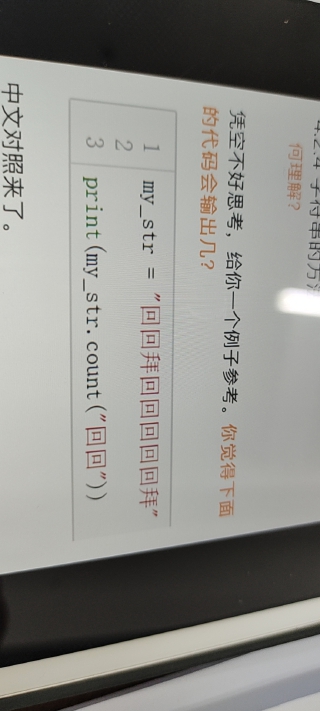 4.2.4 字符串的方法
何理解？
凭空不好思考，给你一个例子参考。你觉得下面
的代码会输出几？
1 my_str = "回回拜回回回回回拜"
2
3 print(my_str.count("回回"))
中文对照来了。